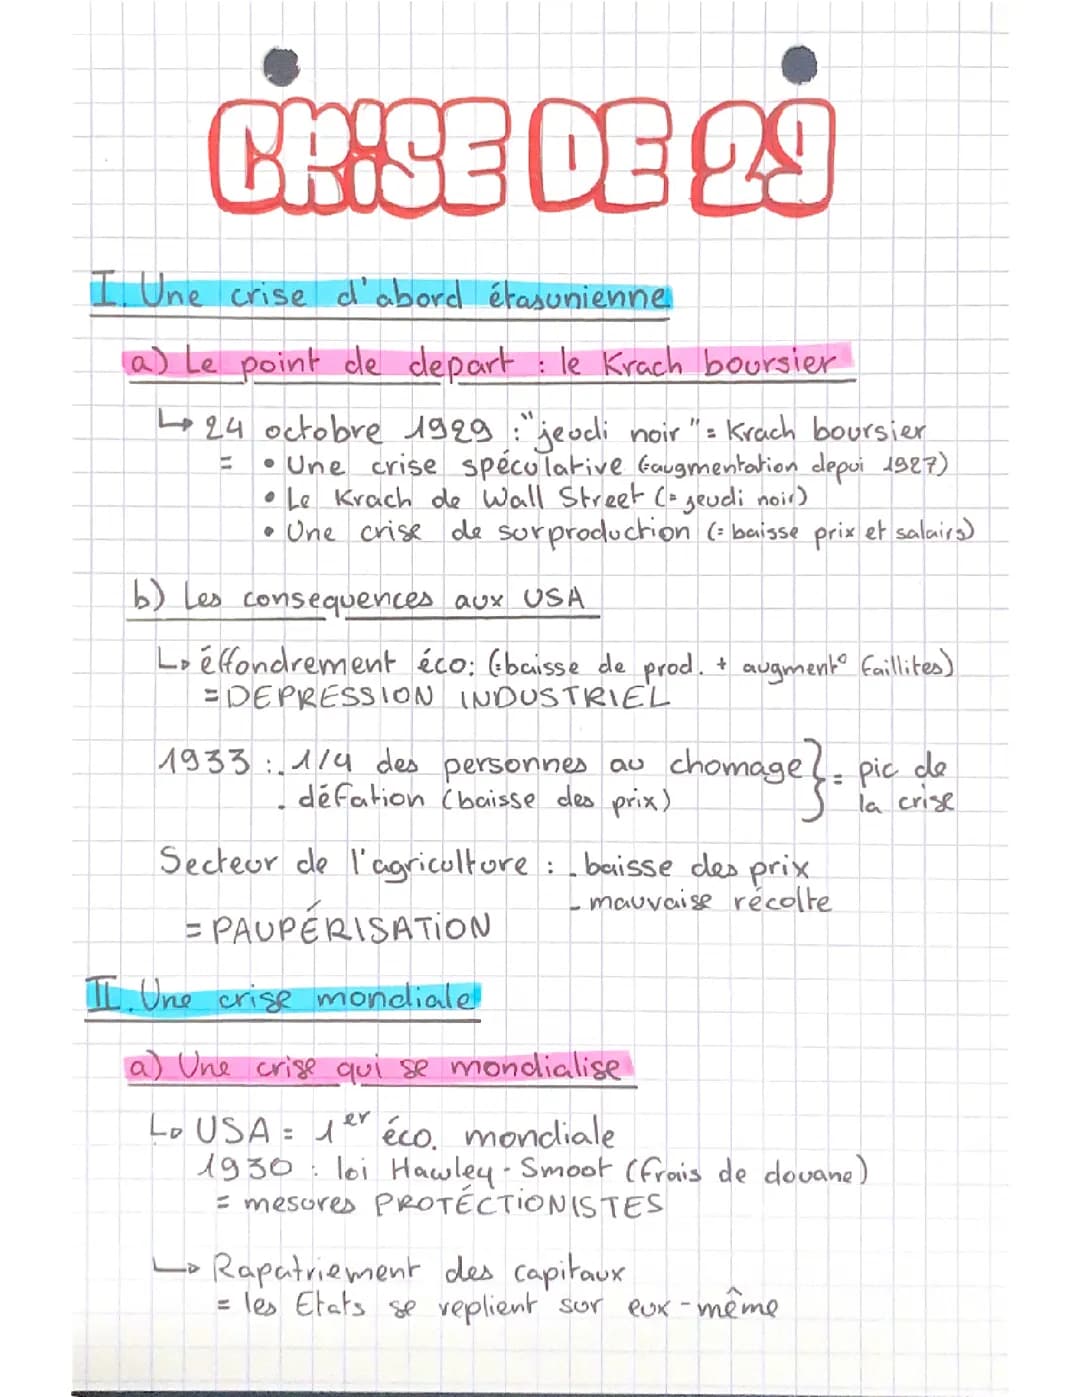 CRiSE DE 29
I. Une crise d'abord étasunienne
a) Le point de depart : le Krach boursier
↳ 24 octobre 1929 : "jeudi noir" = Krach boursier
= • Une crise spéculative (=augmentation depui 1927)
• Le Krach de Wall Street (= jeudi noir)
• Une crise de surproduction (= baisse prix et salairs)
b) Les consequences aux USA
↳ éffondrement éco: (=baisse de prod. + augment° faillites)
= DEPRESSION INDUSTRIEL
1933 : . 1/4 des personnes au chomage } = pic de
. défation (baisse des prix) la crise
Secteur de l'agriculture : . baisse des prix
- mauvaise récolte
= PAUPÉRISATiON
II. Une crise mondiale
a) Une crise qui se mondialise
↳ USA = 1er éco. mondiale
1930 : loi Hawley - Smoot (frais de douane)
= mesures PROTÉCTiONISTES
↳ Rapatriement des capitaux
= les Etats se replient sur eux-même